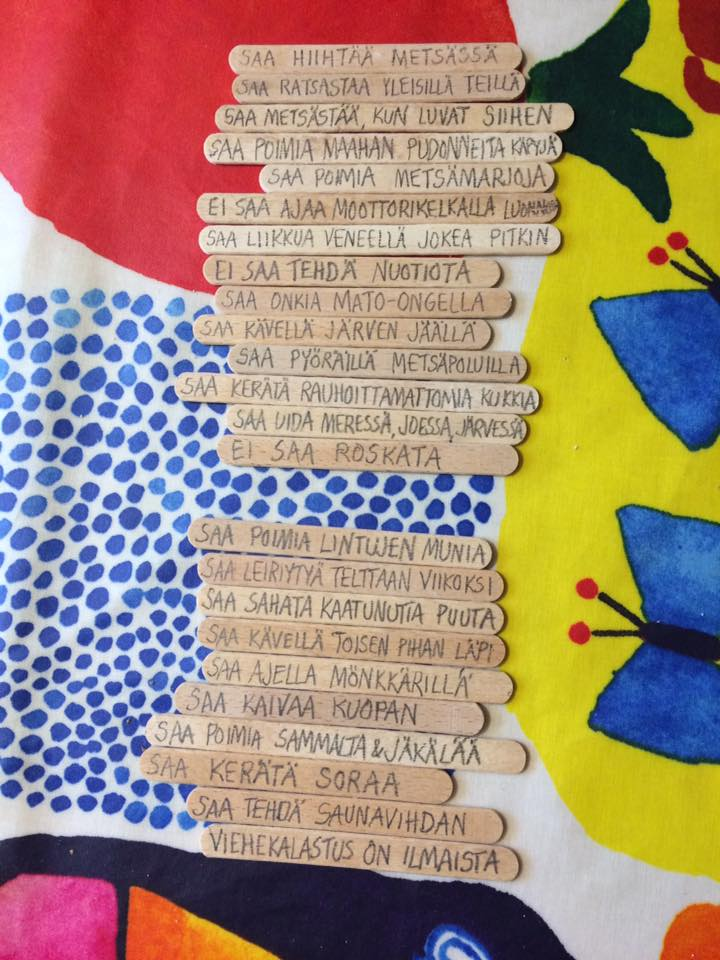 SAA HIIHTÄÄ METSÄSSÄ
SAA RATSASTAA YLEISILLÄ TEILLÄ
SAA METSÄSTÄÄ, KUN LUVAT SIIHEN
SAA POIMIA MAAHAN PUDONNEITA KÄPYJÄ
SAA POIMIA METSÄMARJOJA
EI SAA AJAA MOOTTORIKELKALLA LUONNOSSA
SAA LIIKKUA VENEELLÄ JOKEA PITKIN
EI SAA TEHDÄ NUOTIOTA
SAA ONKIA MATO-ONGELLA
SAA KÄVELLÄ JÄRVEN JÄÄLLÄ
SAA PYÖRÄILLÄ METSÄPOLUILLA
SAA KERÄTÄ RAUHOITTAMATTOMIA KUKKIA
SAA UIDA MERESSÄ, JOESSA, JÄRVESSÄ
EI SAA ROSKATA
SAA POIMIA LINTUJEN MUNIA
SAA LEIRIYTYÄ TELTTAAN VIIKOKSI
SAA SAHATA KAATUNUTTA PUUTA
SAA KÄVELLÄ TOISEN PIHAN LÄPI
SAA AJELLA MÖNKKÄRILLÄ
SAA KAIVAA KUOPAN
SAA POIMIA SAMMALTA & JÄKÄLÄÄ
SAA KERÄTÄ SORAA
SAA TEHDÄ SAUNAVIHDAN
VIEHEKALASTUS ON ILMAISTA